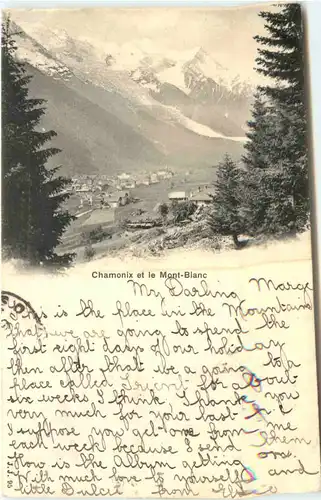 Chamonix et le Mont-Blanc
My Darling Marge
This is the place in the Mountains
that we are going to spend the
first eight days of our holiday
then after that we a going to a
place called for about
six weeks I think I thank you
very much for your last p.c.
I suppose you get one from me
each week because I send them
How is the Album getting on.
With much love to yourself and
little Dulcie from
J.J. 93